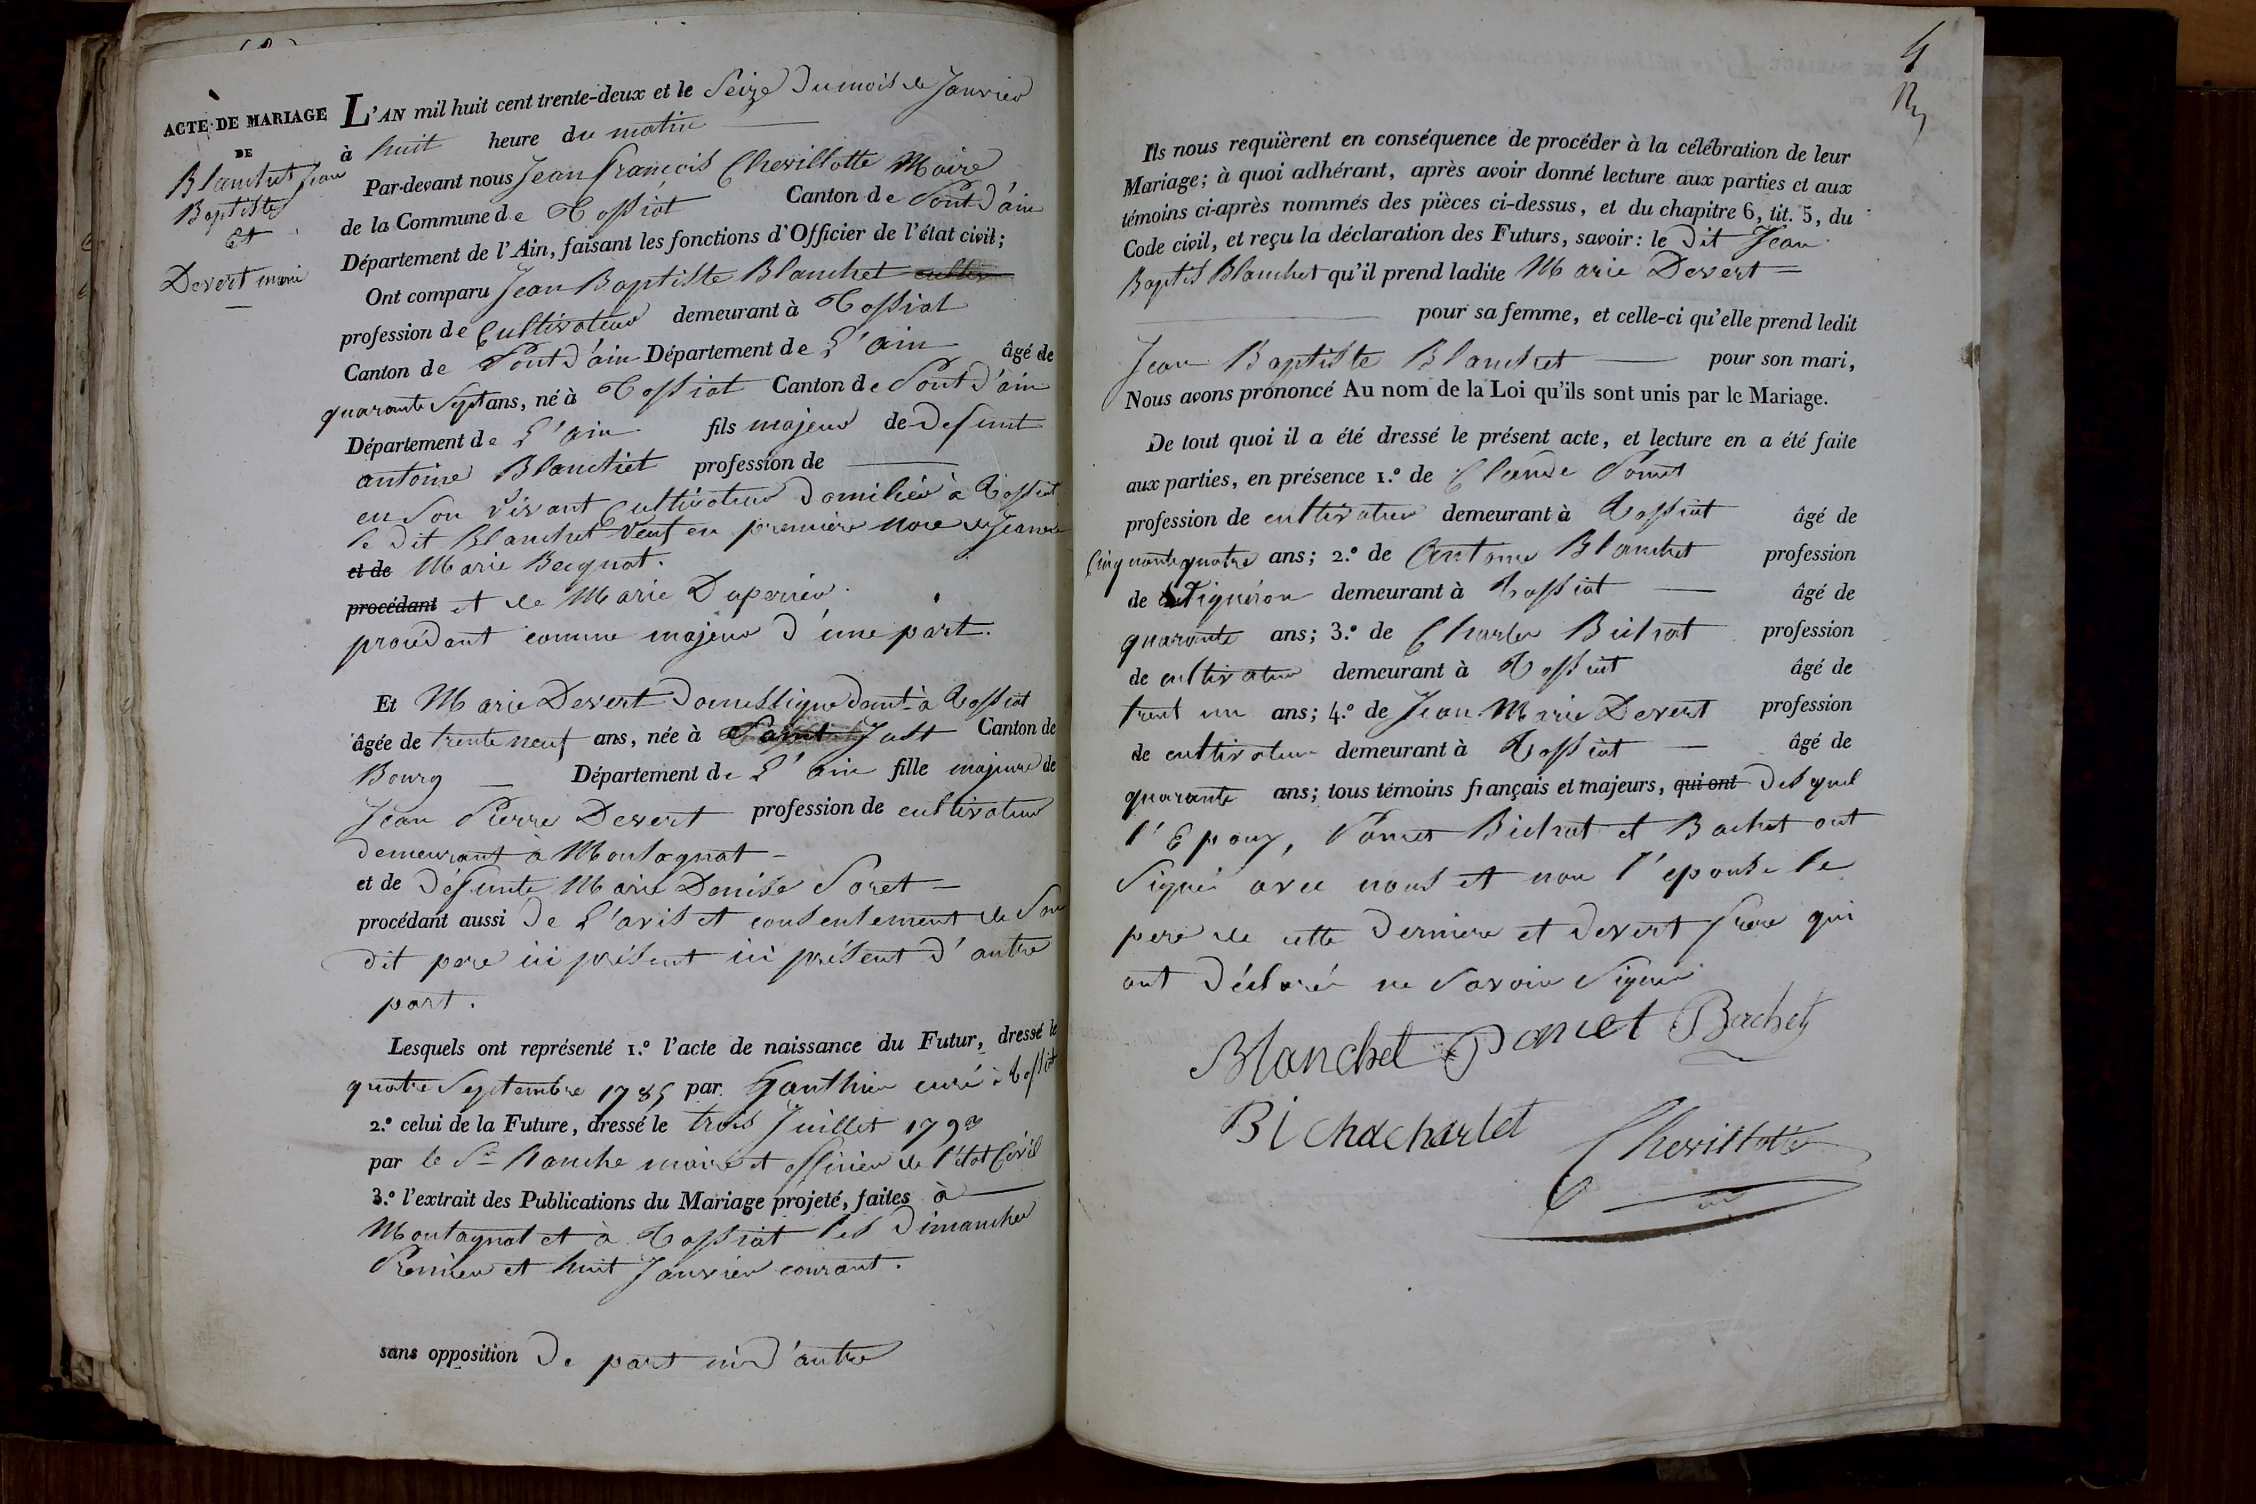 ACTE DE MARIAGE
DE
Blanchet Jean
Baptiste
Et
Devert marie
L'AN mil huit cent trente-deux et le Seize du mois de Janvier
à huit heure du matin
Par-devant nous Jean françois Chevillotte Maire
de la Commune de Tossiat Canton de Pont d'ain
Département de l'Ain, faisant les fonctions d'Officier de l'état civil;
Ont comparu Jean Baptiste Blanchet
profession de Cultivateur demeurant à Tossiat
Canton de Pont d'ain Département de L'ain âgé de
quarante Sept ans, né à Tossiat Canton de Pont d'ain
Département de L'ain fils majeur de Defunt
antoine Blanchet profession de
en Son vivant Cultivateur Domicilié à Tossiat
le dit Blanchet Veuf en première noce de Jeanne
et de Marie Becquat.
procédant et de Marie Duperrier.
procédant comme majeur d'une part.
Et Marie Devert Domestique demt à Tossiat
âgée de trente neuf ans, née à Saint Just Canton de
Bourg Département de L'ain fille majeure de
Jean Pierre Devert profession de cultivateur
demeurant à Montagnat
et de défunte Marie Denise Poret
procédant aussi De L'avis et consentement de Son
dit pere ici présent ici présent d'autre
part.
Lesquels ont représenté 1.º l'acte de naissance du Futur, dressé le
quatre Septembre 1785 par Gauthier curé à Tossiat
2.º celui de la Future, dressé le trois Juillet 1793
par le Sr hanche maire et officier de l'état Civil
3.º l'extrait des Publications du Mariage projeté, faites à
Montagnat et à Tossiat les Dimanches
Premier et huit Janvier courant.
sans opposition De part ni d'autre
4
Ils nous requièrent en conséquence de procéder à la célébration de leur
Mariage; à quoi adhérant, après avoir donné lecture aux parties et aux
témoins ci-après nommés des pièces ci-dessus, et du chapitre 6, tit. 5, du
Code civil, et reçu la déclaration des Futurs, savoir: le dit Jean
Baptis Blanchet qu'il prend ladite Marie Devert
pour sa femme, et celle-ci qu'elle prend ledit
Jean Baptiste Blanchet pour son mari,
Nous avons prononcé Au nom de la Loi qu'ils sont unis par le Mariage.
De tout quoi il a été dressé le présent acte, et lecture en a été faite
aux parties, en présence 1.º de Claude Pomet
profession de cultivateur demeurant à Tossiat âgé de
Cinquante quatre ans; 2.º de Antoine Blanchet profession
de Vigneron demeurant à Tossiat âgé de
quarante ans; 3.º de Charles Bichat profession
de cultivateur demeurant à Tossiat âgé de
trent un ans; 4.º de Jean Marie Devert profession
de cultivateur demeurant à Tossiat âgé de
quarante ans; tous témoins français et majeurs, qui ont Des quel
l'Epoux, Pomet Bichat et Bachet ont
Signé avec nous et non l'epouse le
pere de cette Derniere et Devert frere qui
ont Déclaré ne Savoir Signer
Blanchet Pomet Bachet
Bichacharlet Chevillotte